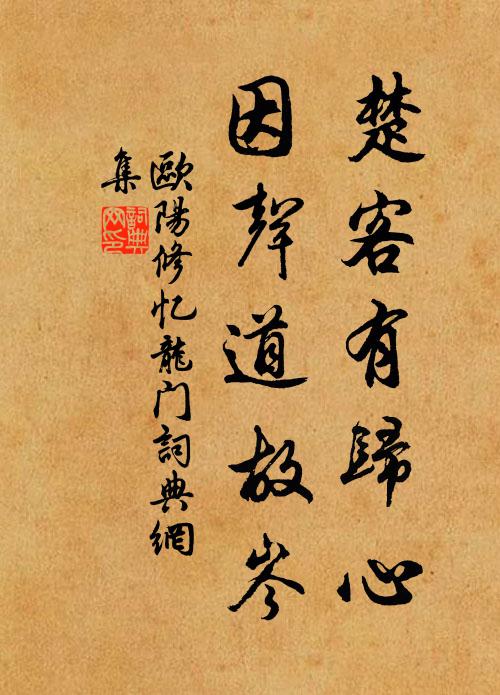 楚客有歸心
因聲道故岑
歐陽修忆龍门詞典網
集
詞典網印